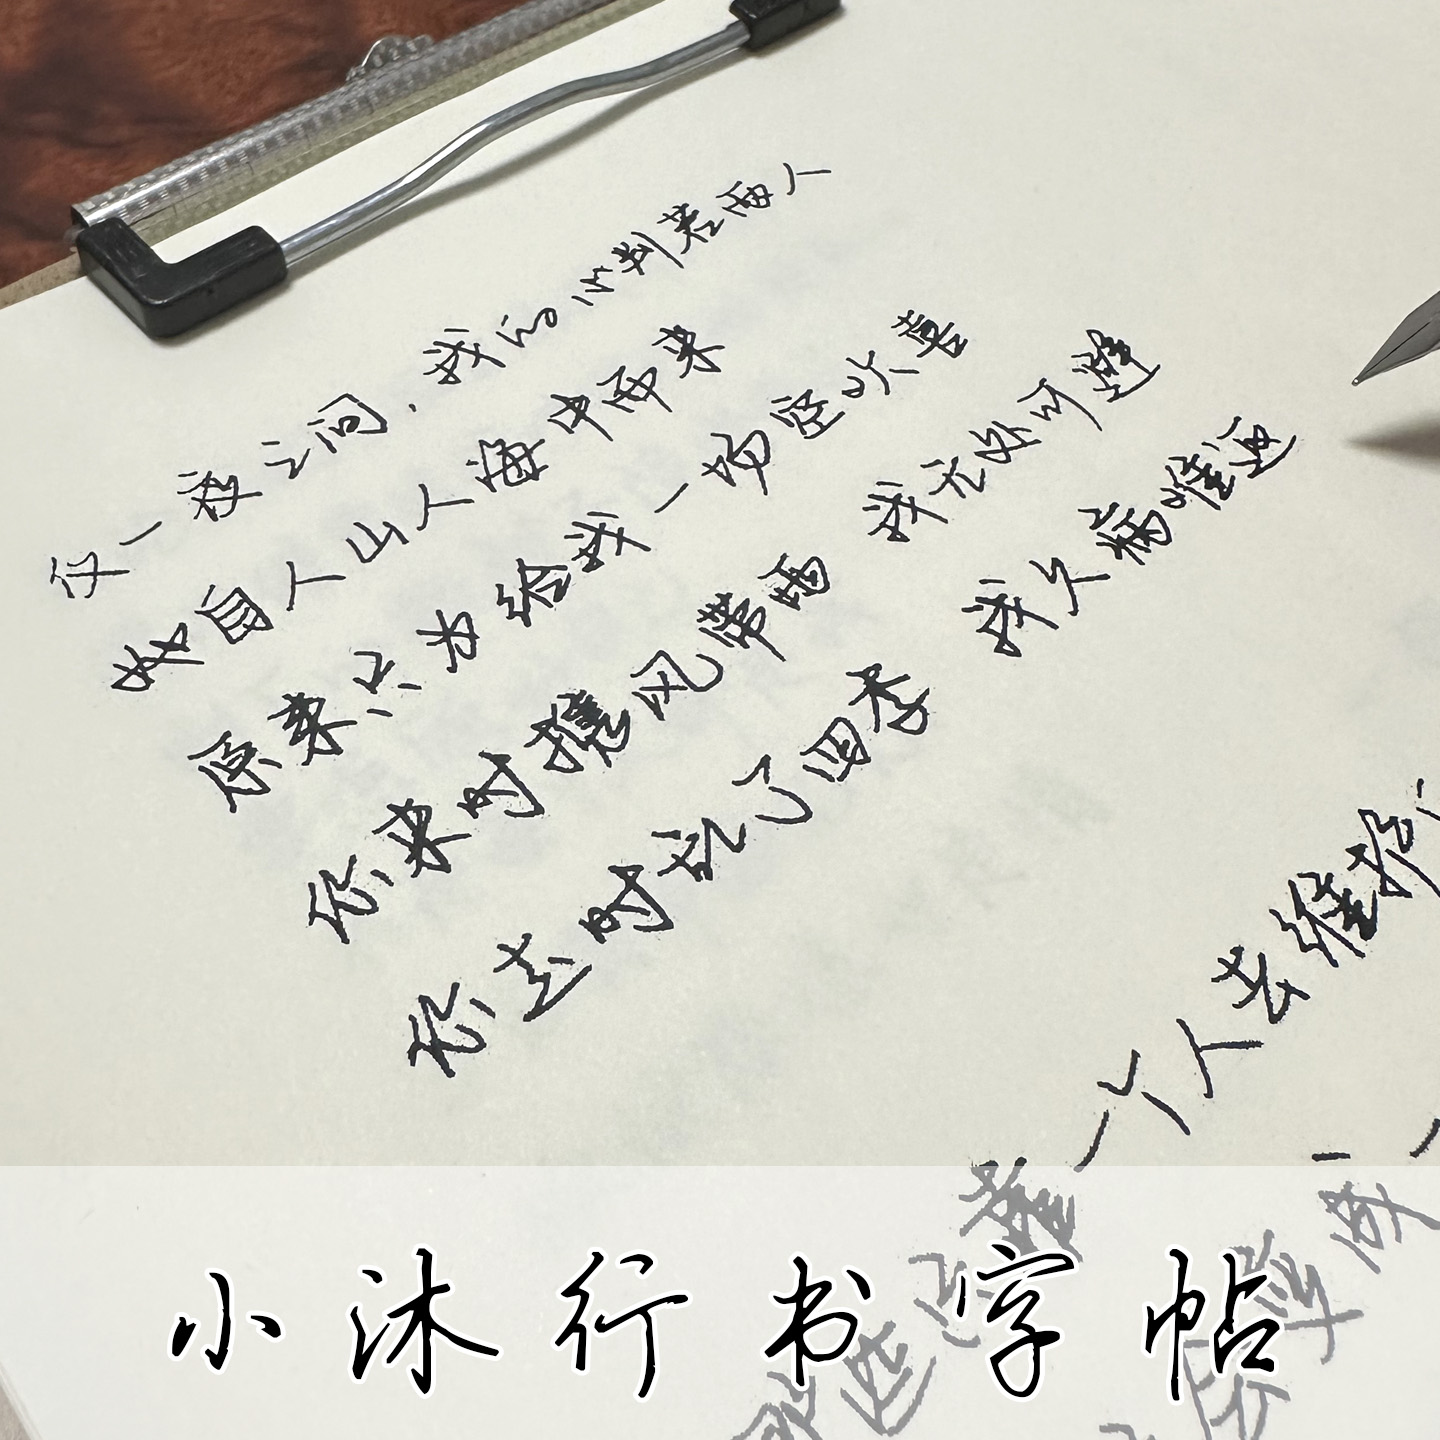 仅一夜之间，我的心判若两人
她自人山人海中而来
原来只为给我一场空欢喜
你来时携风带雨 我无处可避
你去时乱了四季 我久病难返
一个人去维护
小沐行书字帖